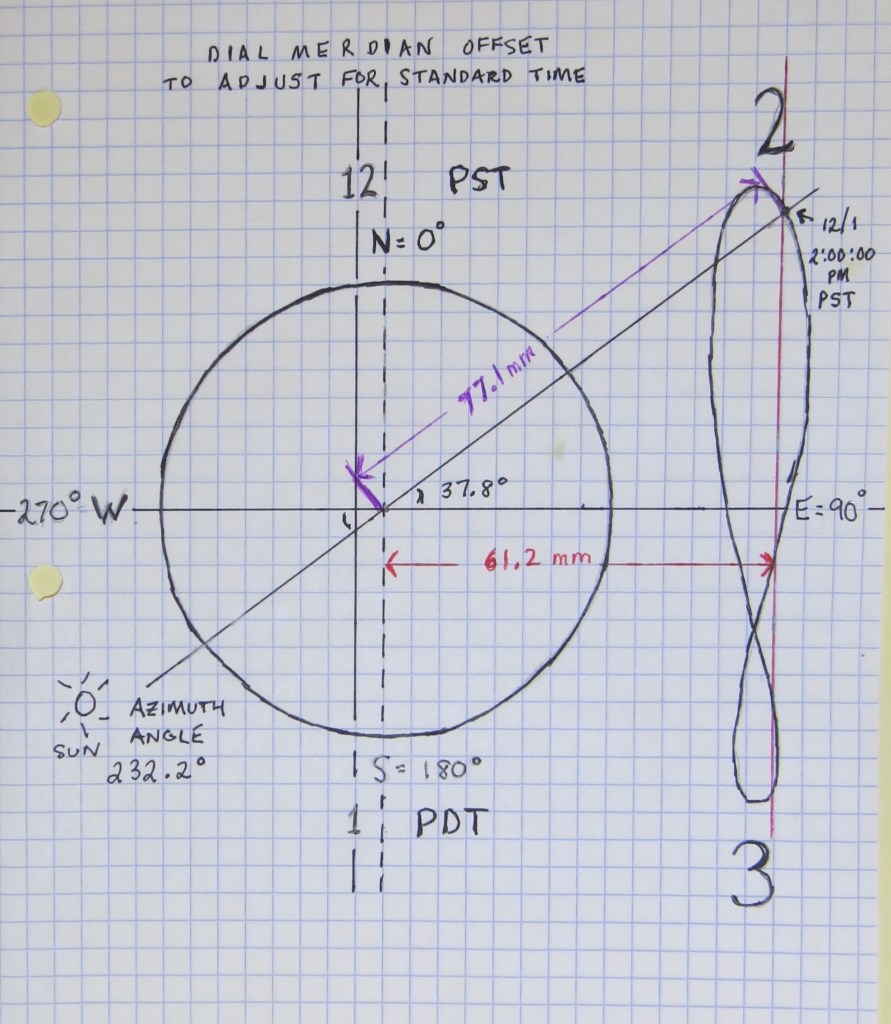 DIAL MERDIAN OFFSET
TO ADJUST FOR STANDARD TIME
2
12 PST
N = 0°
12/1
2:00:00
PM
PST
77.1 mm
37.8°
270° W
E = 90°
61.2 mm
SUN
AZIMUTH
ANGLE
232.2°
S = 180°
1 PDT
3